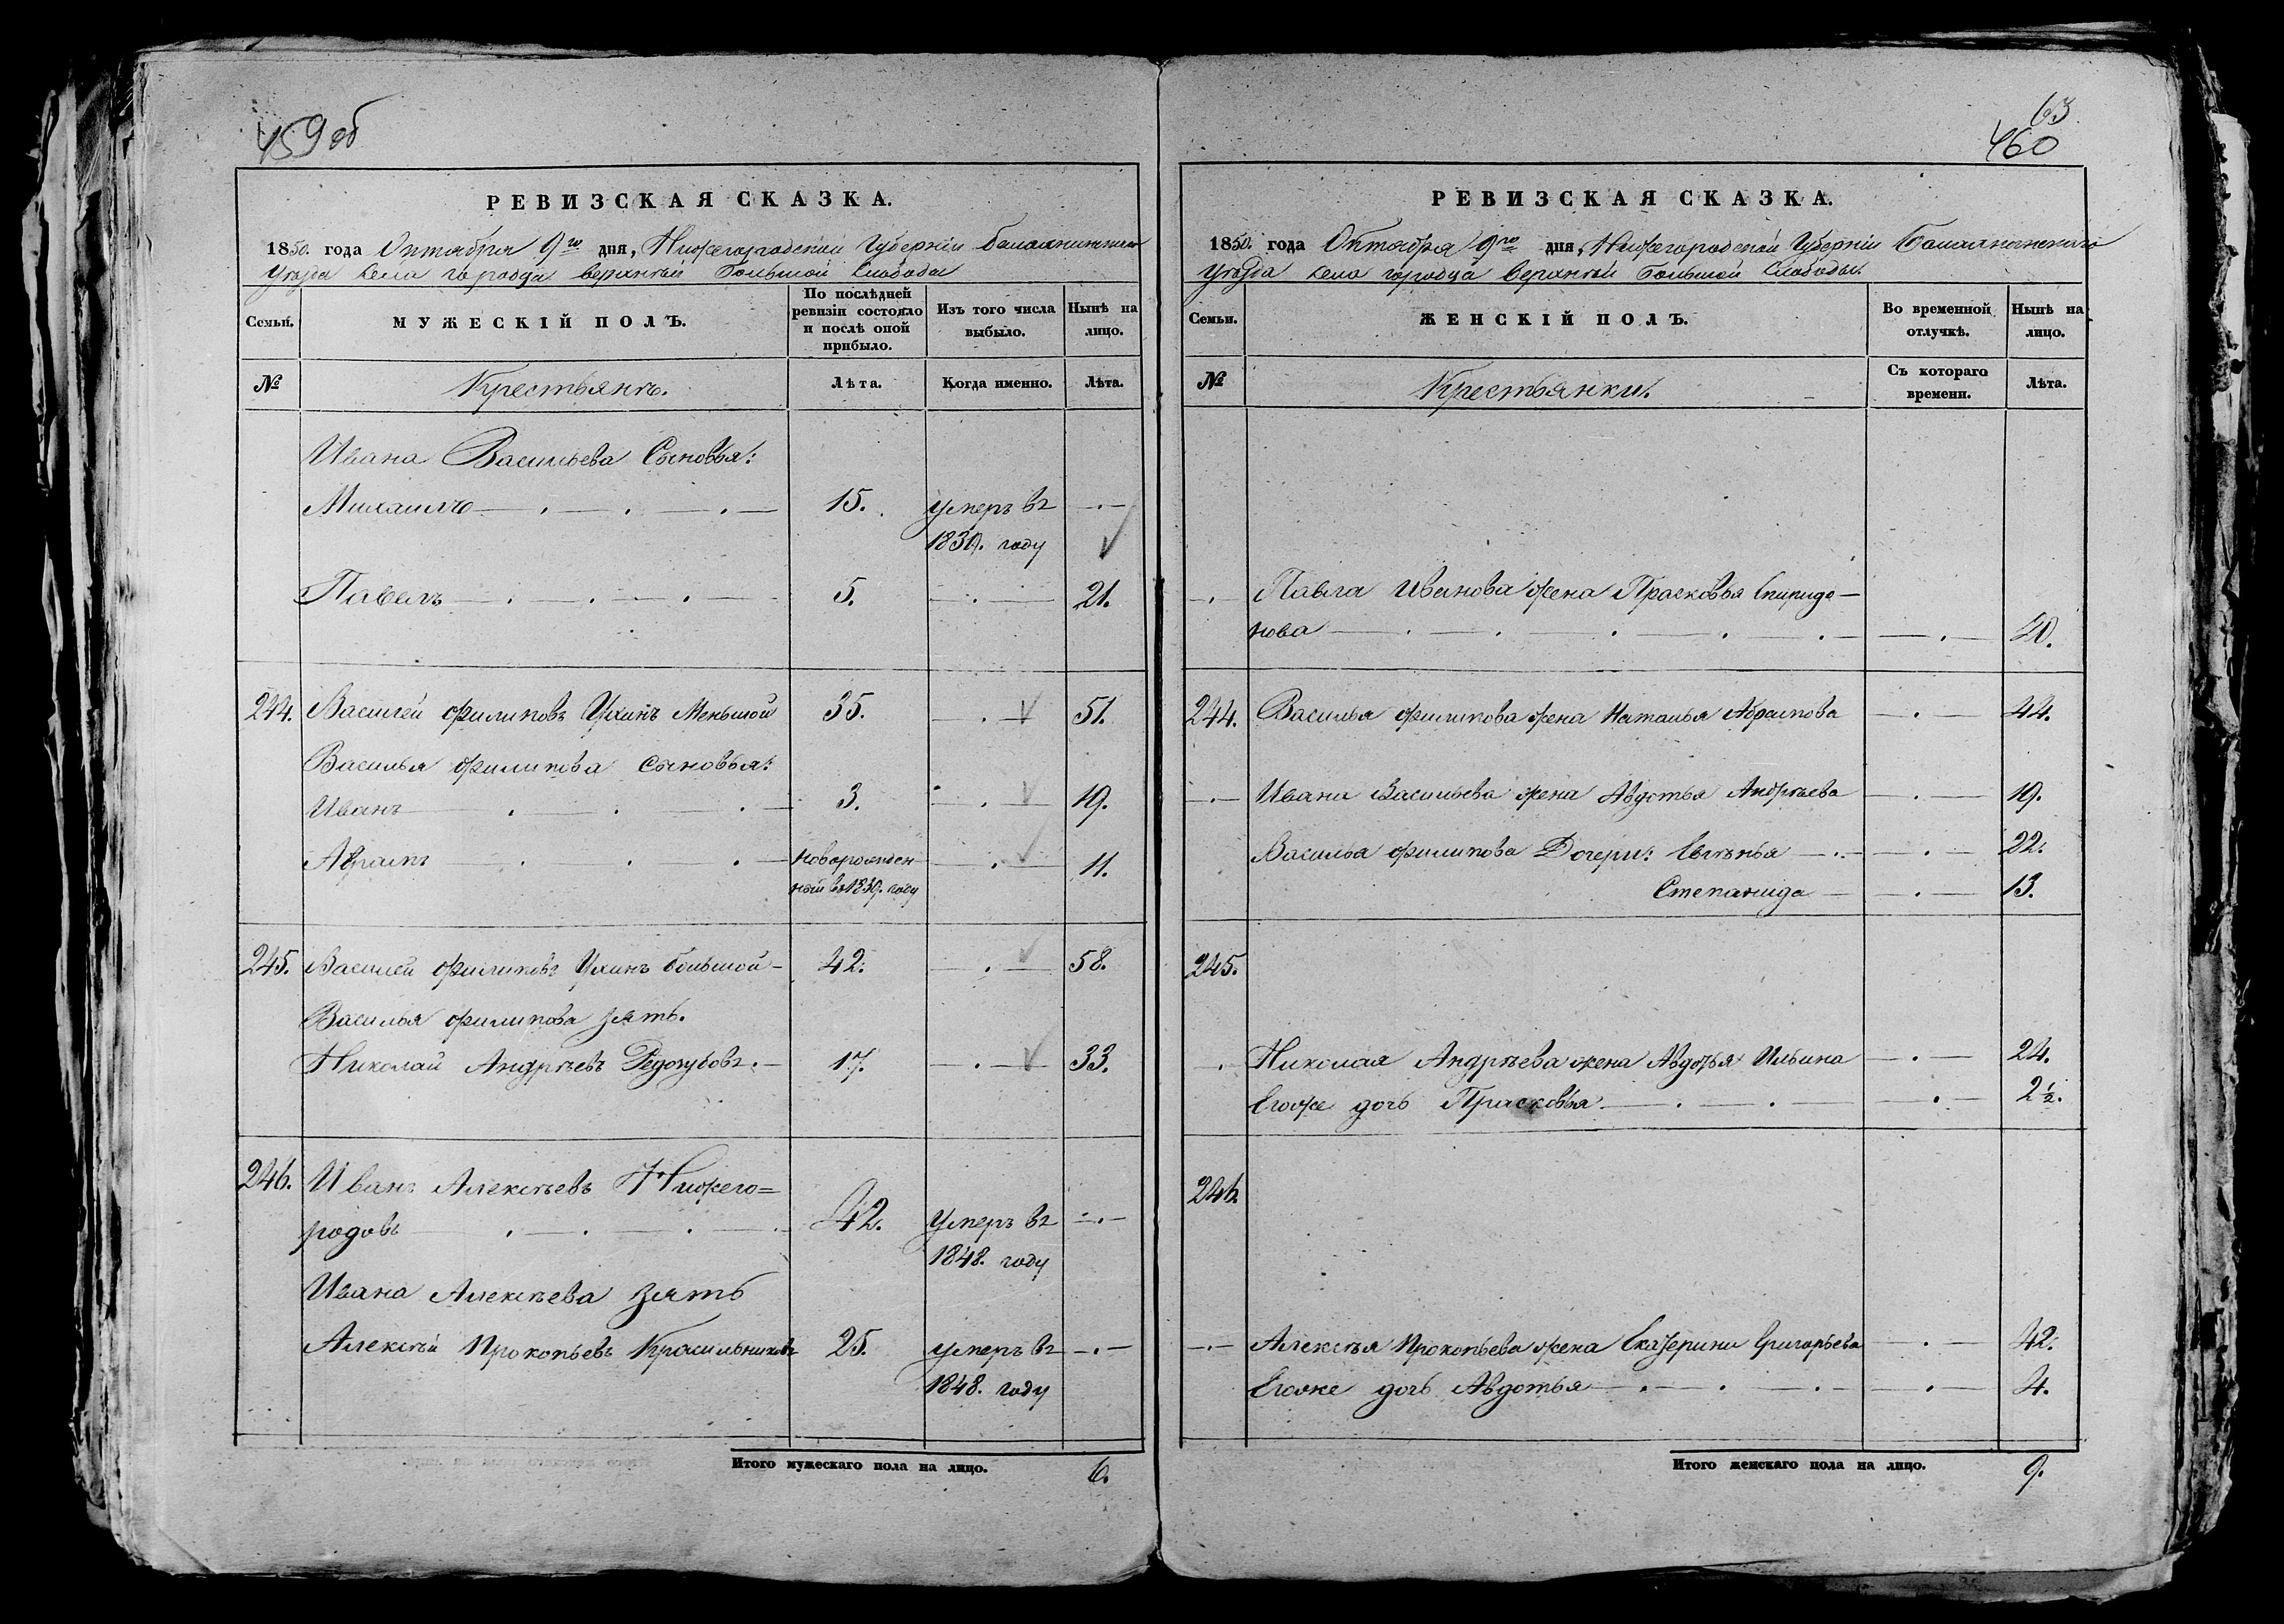 459об
РЕВИЗСКАЯ СКАЗКА.
1850. года Октября 9го дня, Нижегородской Губерніи Балахнинскаго
Уѣзда села городца верхнѣй большой слободы
Семьи.
МУЖЕСКІЙ ПОЛЪ.
По послѣдней ревизіи состояло и послѣ оной прибыло.
Изъ того числа выбыло.
Нынѣ на лицо.
№
Крестьянъ.
Лѣта.
Когда именно.
Лѣта.
Ивана Васильева Сыновья:
Михаило 15. умеръ въ
1839. году
Павелъ 5. 21.
244. Василей Филиповъ Ухинъ Меньшой 35. 51.
Василья Филипова сыновья:
Иванъ 3. 19.
Абрамъ новорожден- 11.
ный въ 1839. году
245. Василей Филиповъ Ухинъ большой 42. 58.
Василья Филипова зять.
Николай Андрѣевъ Редозубовъ. 17. 33.
246. Иванъ Алексѣевъ Нижего=
родовъ 42. умеръ въ
1848. году
Ивана Алексѣева зять
Алексѣй Прокопьевъ Красильниковъ 25. умеръ въ
1848. году
Итого мужескаго пола на лицо. 6.
63
460
РЕВИЗСКАЯ СКАЗКА.
1850. года Октября 9го дня, Нижегородской Губерніи Балахнинскаго
Уѣзда села городца верхнѣй большой слободы.
Семьи.
ЖЕНСКІЙ ПОЛЪ.
Во временной отлучкѣ.
Нынѣ на лицо.
№
Крестьянки.
Съ котораго времени.
Лѣта.
Павла Иванова жена Прасковья Спиридо-
нова 20.
244. Василья Филипова жена Наталья Абрамова 44.
Ивана Васильева жена Авдотья Андрѣева 19.
Василья Филипова Дочери: Евгѣнья 22.
Степанида 13.
245.
Николая Андрѣева жена Авдотья Ильина 24.
Егоже дочь Прасковья 2½.
246.
Алексѣя Прокопьева жена Екатерина Григорьева 42.
Егоже дочь Авдотья 4.
Итого женскаго пола на лицо. 9.